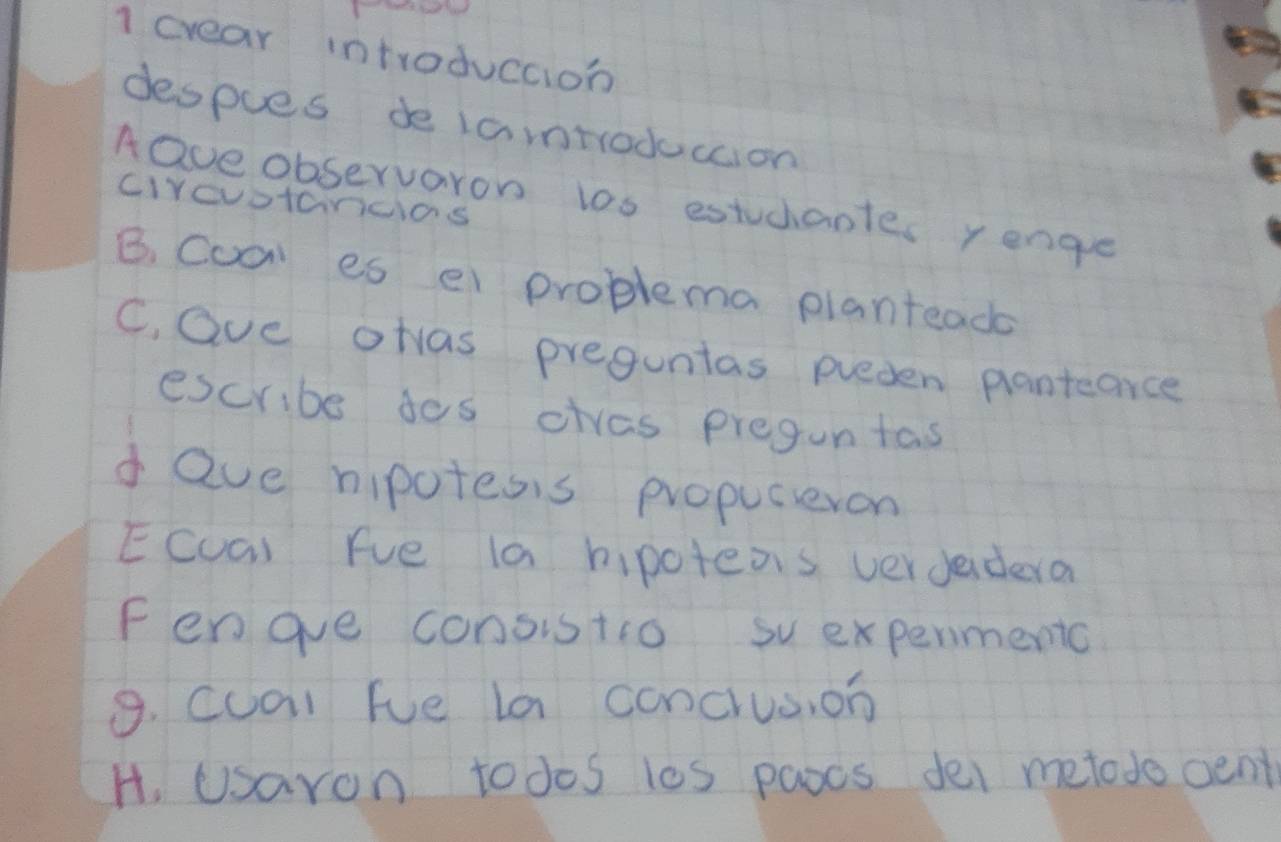 paso
1 crear introducción
despues de la introduccion
A Que observaron los estudiantes y enque
circustancias
B. Cual es el problema planteado
C. Que otras preguntas pueden plantearce
escribe dos otras preguntas
d Que hipotesis propucieron
E Cual fue la hipotesis verdadera
F en que consistio su experimento
g. Cual fue la conclusión
H. Usaron todos los pasos del metodo centi